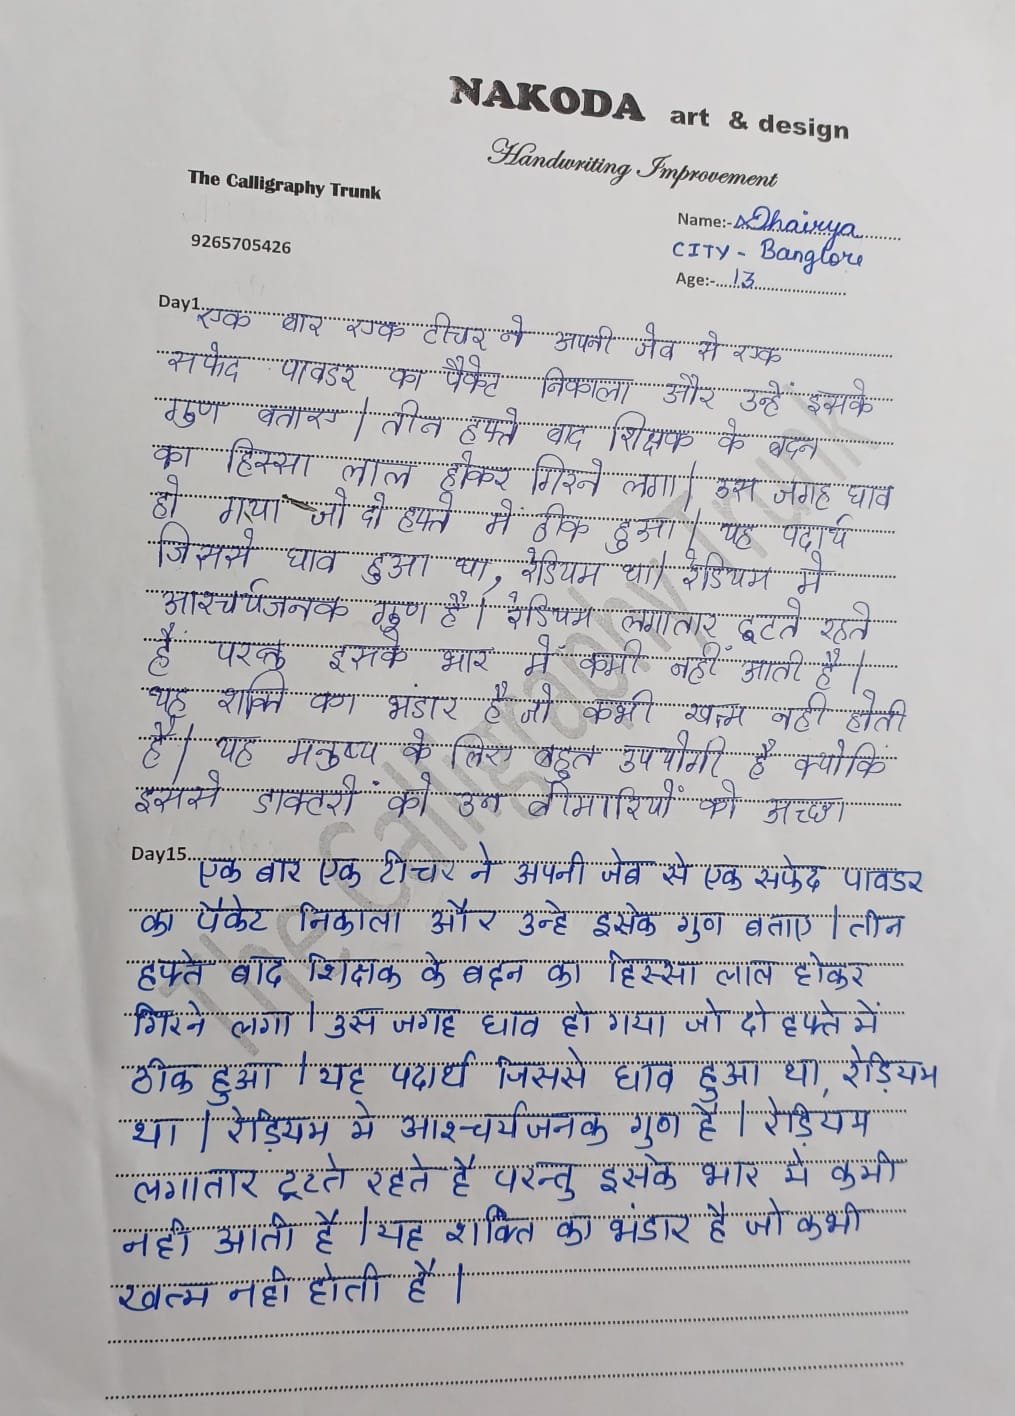 NAKODA art & design
Handwriting Improvement
The Calligraphy Trunk
9265705426
Name:- Dhairya
CITY - Banglore
Age:- 13
Day1 एक बार एक टीचर ने अपनी जेव से एक
सफेद पावडर का पैकेट निकाला और उन्हें इसके
गुण बताए | तीन हफ्ते बाद शिक्षक के बदन
का हिस्सा लाल होकर गिरने लगा | उस जगह घाव
हो गया जो दो हफ्ते में ठीक हुआ | यह पदार्थ
जिससे घाव हुआ था, रेडियम था | रेडियम मे
आश्चर्यजनक गुण है | रेडियम लगातार टूटते रहते
हैं परन्तु इसके भार में कमी नहीं आती है |
यह शक्ति का भंडार है जो कभी खत्म नही होती
है | यह मनुष्य के लिए बहुत उपयोगी है क्योकिं
इससे डाक्टरों को उन बीमारियों को अच्छा
Day15 एक बार एक टीचर ने अपनी जेब से एक सफेद पावडर
का पैकेट निकाला और उन्हे इसके गुण बताए | तीन
हफ्ते बाद शिक्षक के बदन का हिस्सा लाल होकर
गिरने लगा | उस जगह घाव हो गया जो दो हफ्ते में
ठीक हुआ | यह पदार्थ जिससे घाव हुआ था, रेड़ियम
था | रेड़ियम मे आश्चर्यजनक गुण है | रेड़ियम
लगातार टूटते रहते है परन्तु इसके भार मे कमी
नही आती है | यह शक्ति का भंडार है जो कभी
खत्म नही होती है |
The Calligraphy Trunk